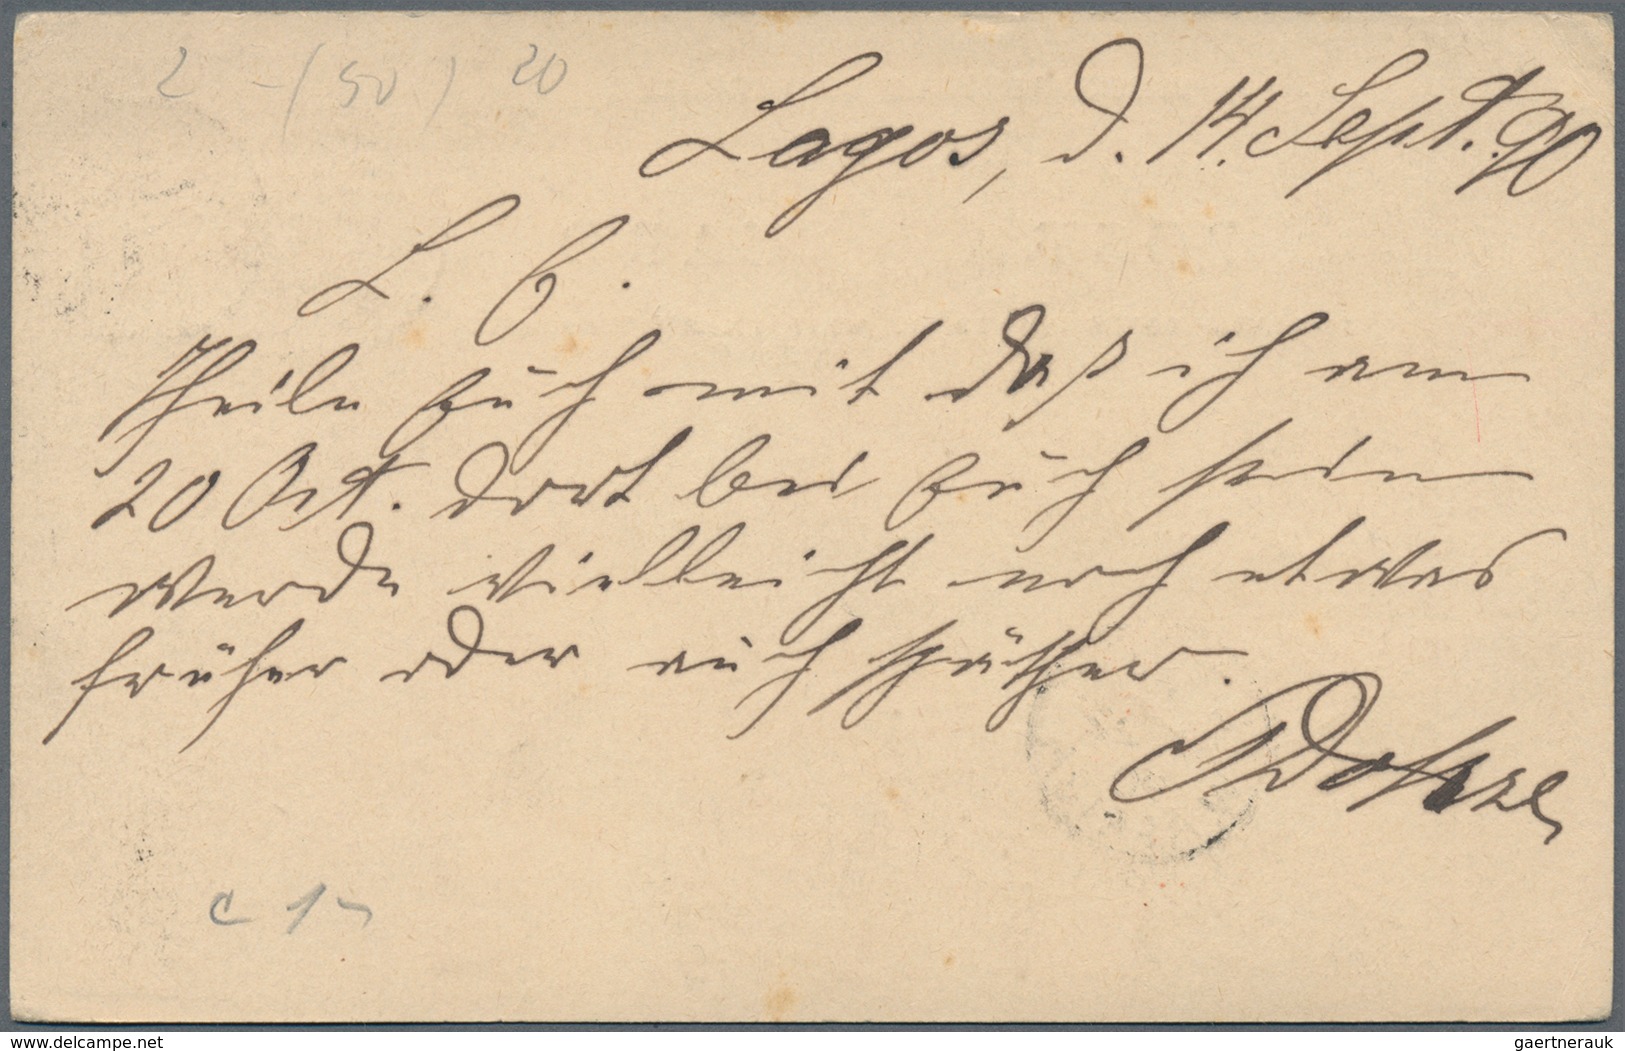 2 -(50) 20
Lagos, d. 14. Sept. 90
L. E.
Theile Euch mit daß ich am
20 Oct. dort bei Euch sein
werde vielleicht noch etwas
früher oder auch später.
c 1
www.delcampe.net
gaertnerauk